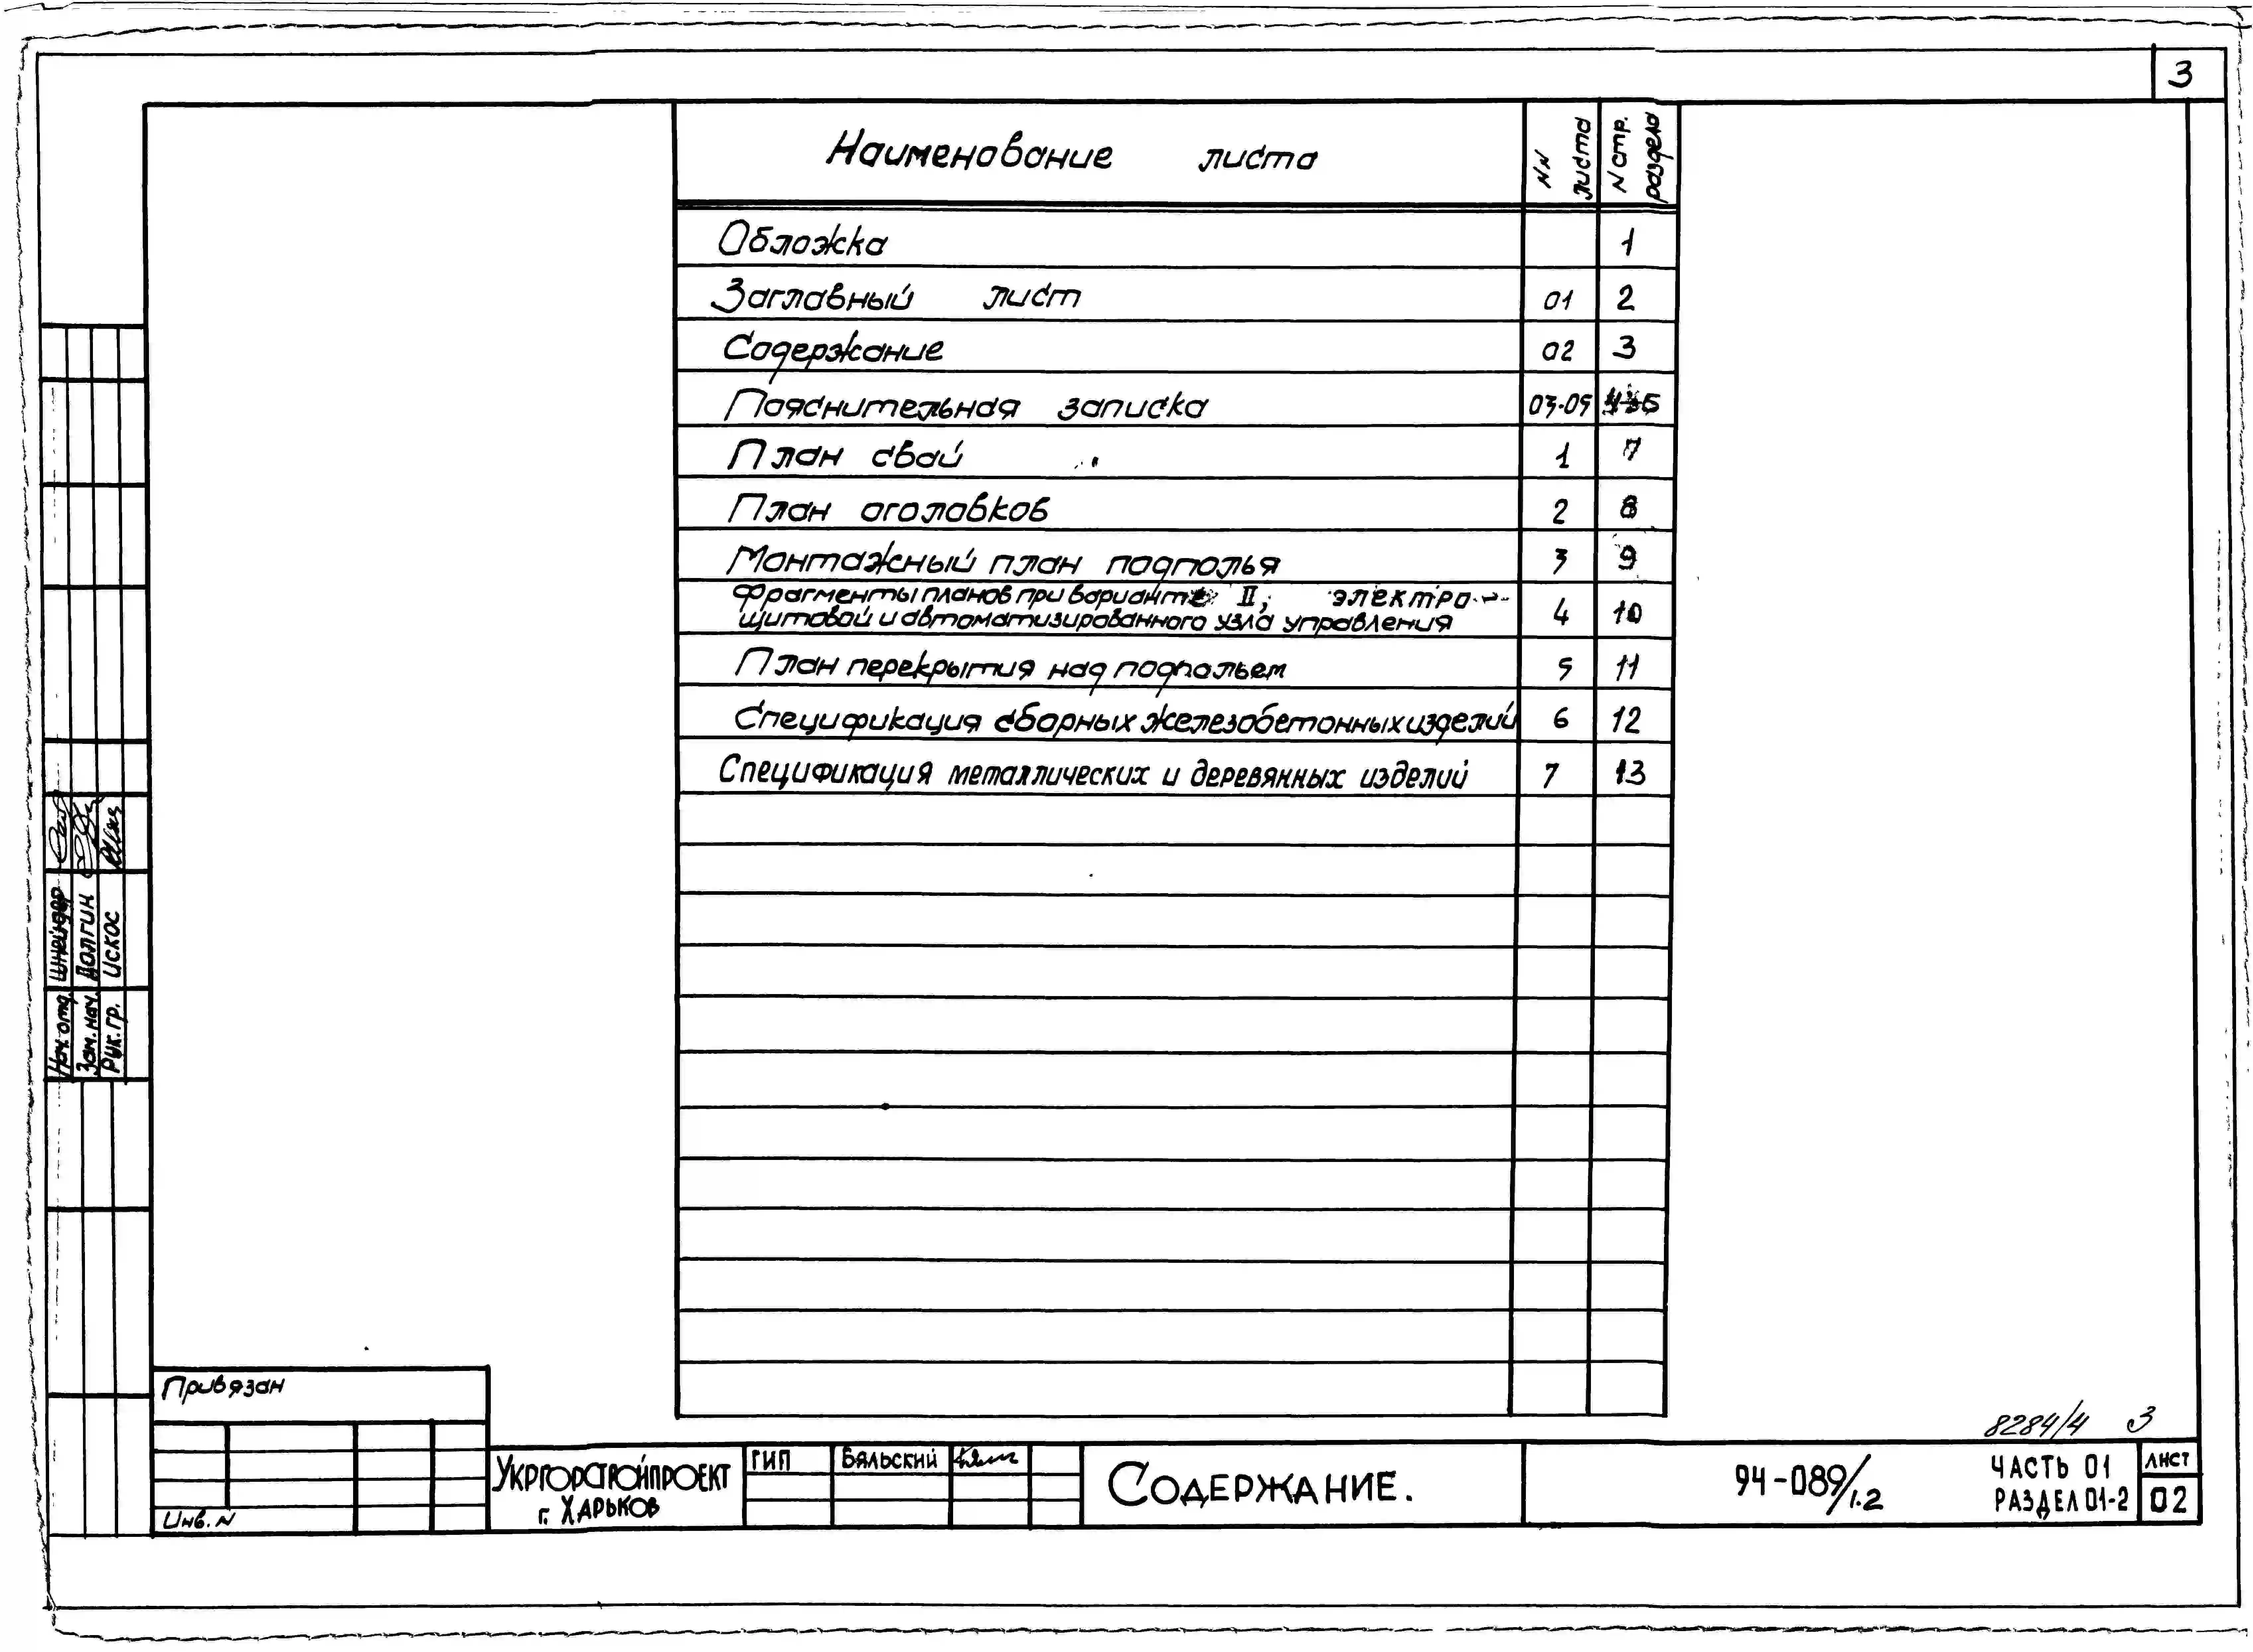 3
Наименование листа NN листа N стр. раздела
Обложка 1
Заглавный лист 01 2
Содержание 02 3
Пояснительная записка 03-05
План свай 1 7
План оголовков 2 8
Монтажный план подполья 3 9
Фрагменты планов при варианте II, электро-
щитовой и автоматизированного узла управления 4 10
План перекрытия над подпольем 5 11
Спецификация сборных железобетонных изделий 6 12
Спецификация металлических и деревянных изделий 7 13
Нач. отд. Шнейдер
Зам. нач. Долгин
Рук. гр. Искос
Привязан
Инв. N
Укргорстройпроект
г. Харьков
ГИП Бяльский
Содержание.
8284/4 3
94-089/1.2
Часть 01
Раздел 01-2
лист
02